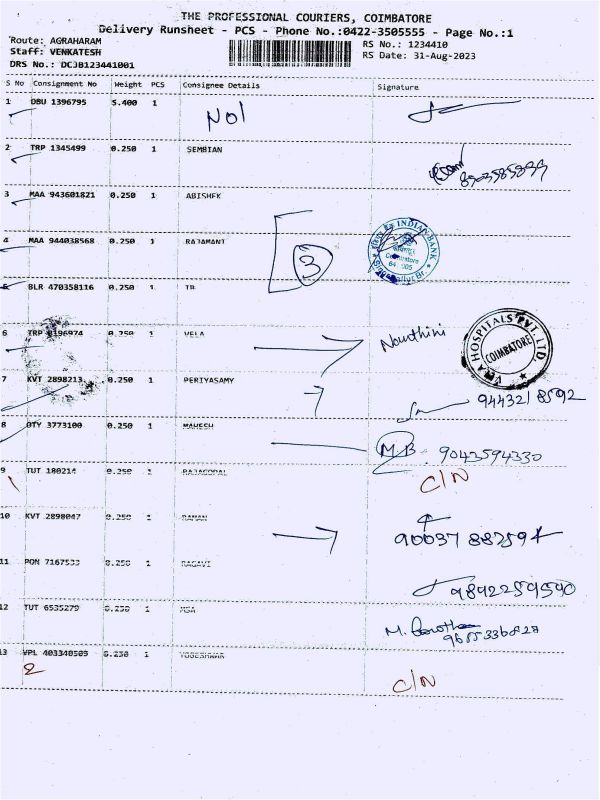 THE PROFESSIONAL COURIERS, COIMBATORE
Delivery Runsheet - PCS - Phone No.:0422-3505555 - Page No.:1
Route: AGRAHARAM RS No.: 1234410
Staff: VENKATESH RS Date: 31-Aug-2023
DRS No.: DCJB123441001
S No Consignment No Weight PCS Consignee Details Signature
1 DBU 1396795 5.400 1 NOI
2 TRP 1345499 0.250 1 SEMBIAN
3 MAA 943601821 0.250 1 ABISHEK
4 MAA 944038568 0.250 1 RAJAMANI 3 INDIAN BANK
5 BLR 470358116 0.250 1
6 TRP 0.250 1 VELA HOSPITALS PVT. LTD. COIMBATORE
7 KVT 2898213 0.250 1 PERIYASAMY 9443218592
8 OTY 3773100 0.250 1 MAHESH M.B. 9043594330
9 TUT 180214 0.250 1 RAJAGOPAL C/N
1
10 KVT 2898047 0.250 1 RAMAN
11 PON 7167533 0.250 1 RAGAVI 9892259590
12 TUT 6535279 0.250 1 M.
13 VPL 403340509 0.250 1 YOGESHWAR C/N
2